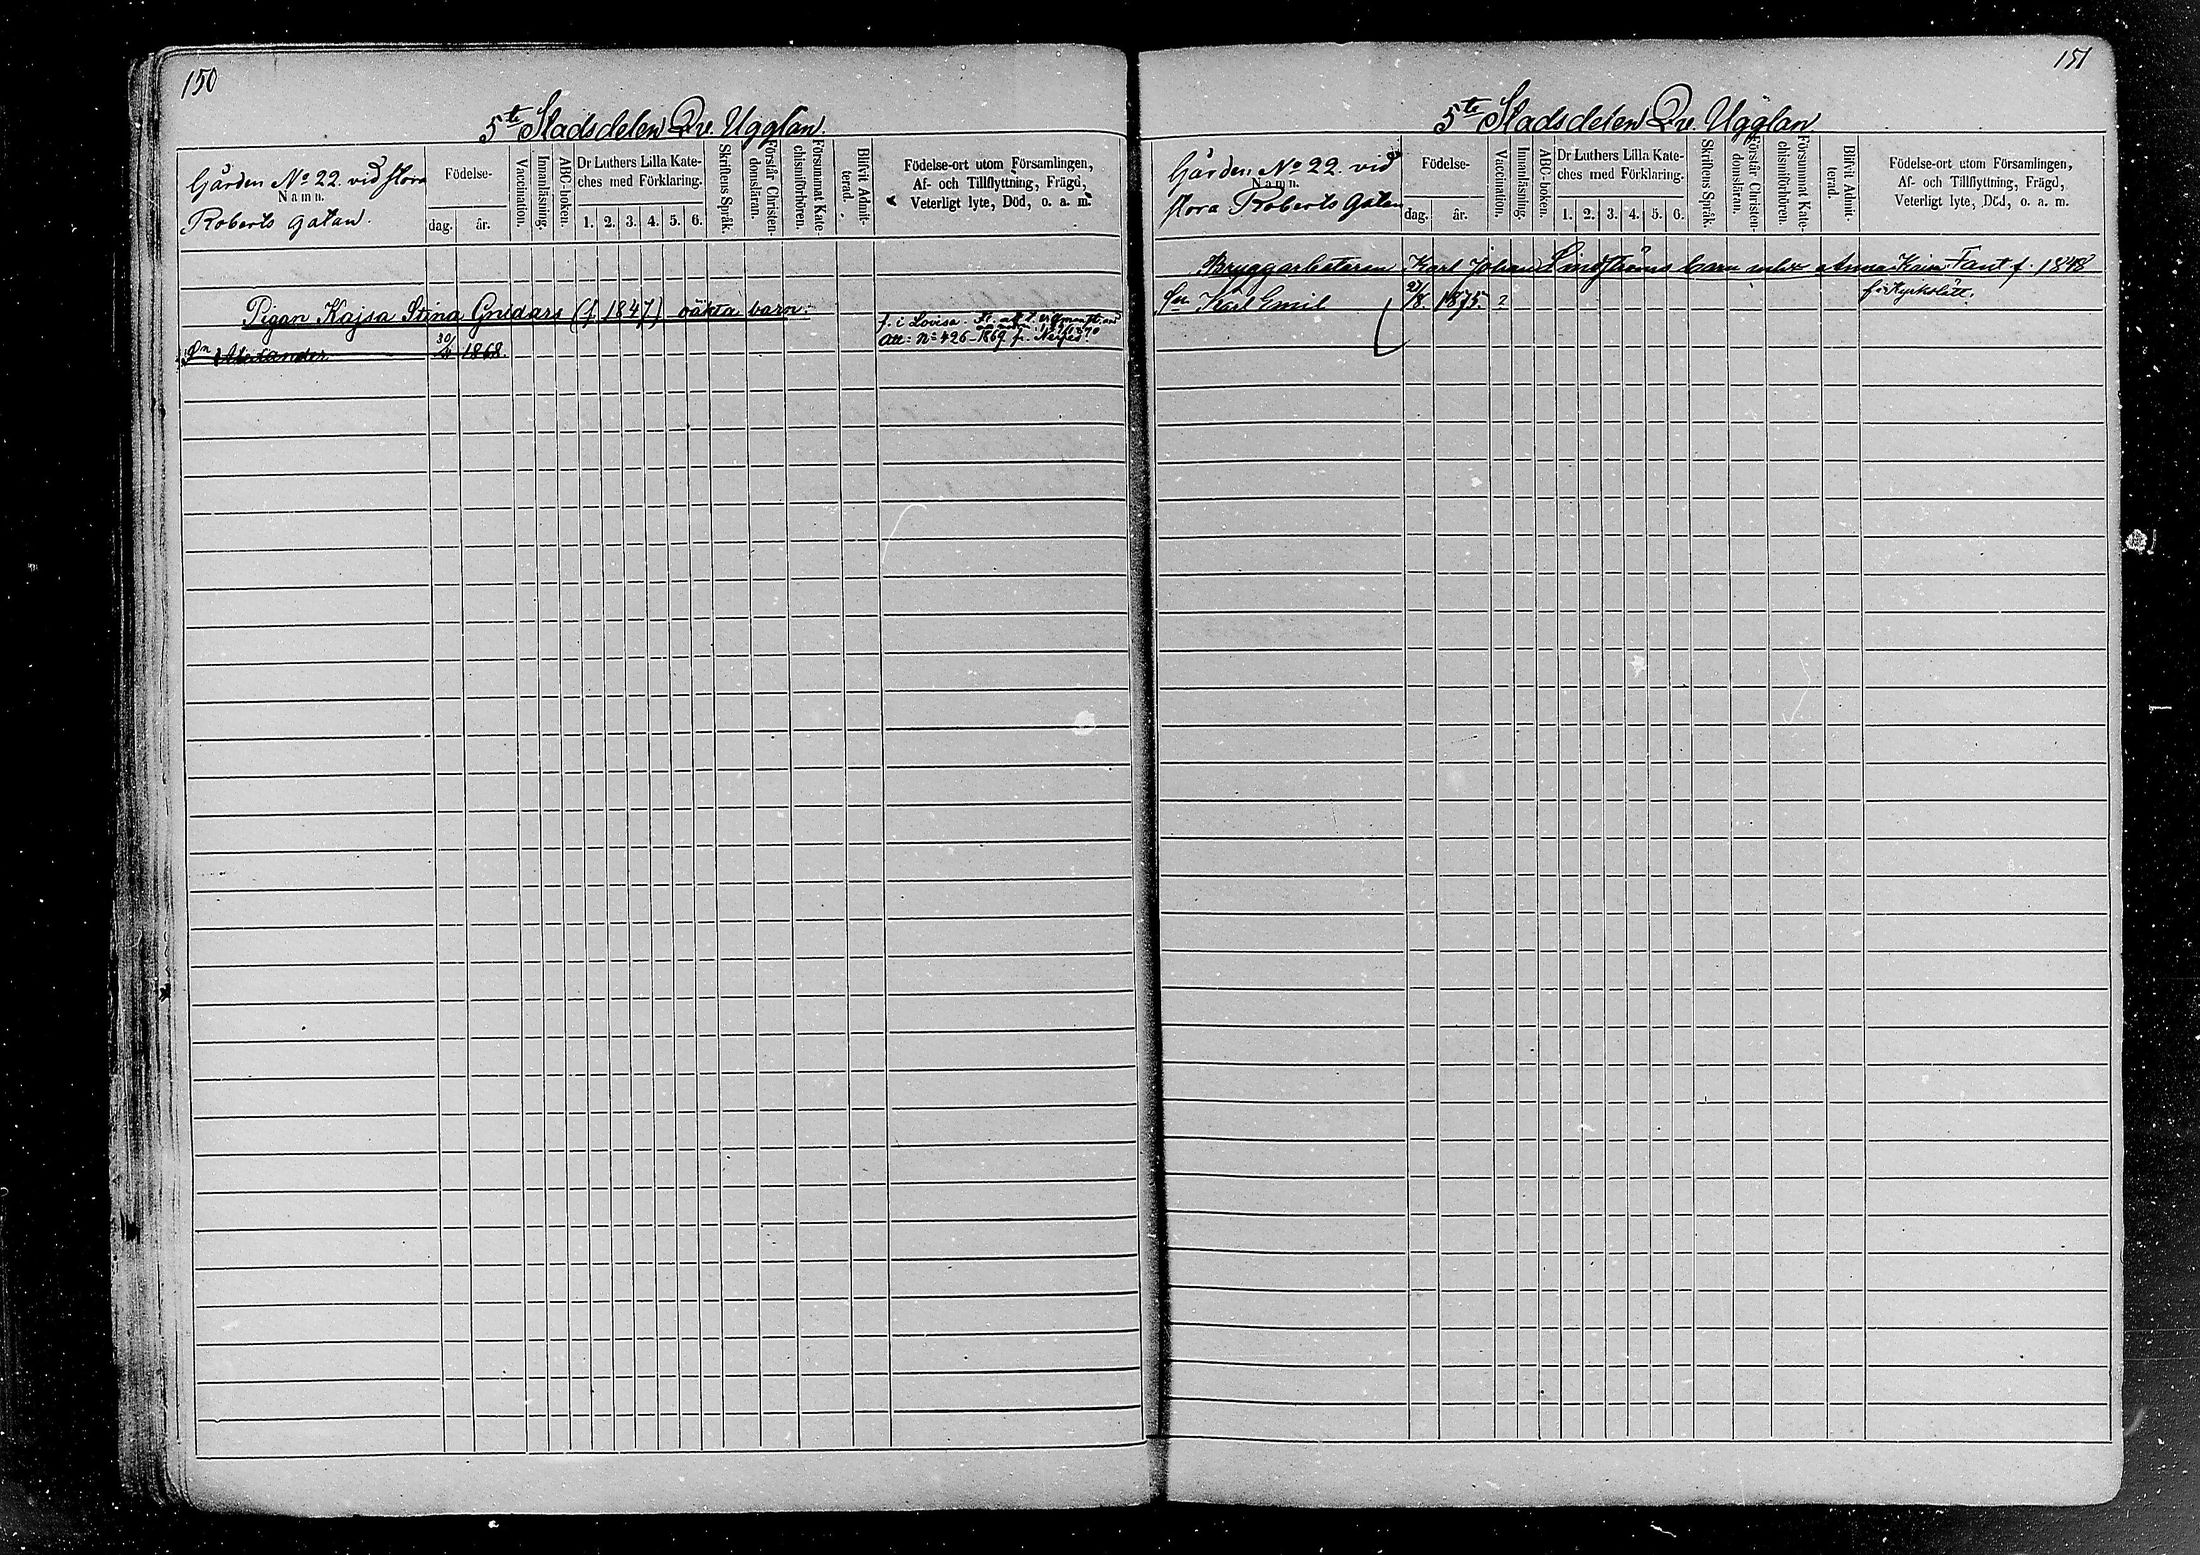 150
5te Stadsdelen Qv. Ugglan.
Gården No 22. vid stora
Namn.
Roberts gatan.
Födelse-
dag. år.
Vaccination.
Innanläsning.
ABC-boken.
Dr Luthers Lilla Kate-
ches med Förklaring.
1. 2. 3. 4. 5. 6.
Skriftens Språk.
Förstår Christen-
domsläran.
Försummat Kate-
chismiförhören.
Blifvit Admit-
terad.
Födelse-ort utom Församlingen,
Af- och Tillflyttning, Frägd,
Veterligt lyte, Död, o. a. m.
Pigan Kajsa Stina Gnidars (f. 1847) oäkta barn:
f. i Lovisa.
Att: No 426 1869 fr. Nerpes.
Sn Alexander 30/4 1868.
151
5te Stadsdelen Qv. Ugglan
Gården No 22. vid
Namn.
stora Roberts gatan
Födelse-
dag. år.
Vaccination.
Innanläsning.
ABC-boken.
Dr Luthers Lilla Kate-
ches med Förklaring.
1. 2. 3. 4. 5. 6.
Skriftens Språk.
Förstår Christen-
domsläran.
Försummat Kate-
chismiförhören.
Blifvit Admit-
terad.
Födelse-ort utom Församlingen,
Af- och Tillflyttning, Frägd,
Veterligt lyte, Död, o. a. m.
Bryggarbetaren Karl Johan Lindströms barn m. Anna Kaisa Fant f. 1848
f. i Kyrkslätt.
Sn Karl Emil 1875. ?